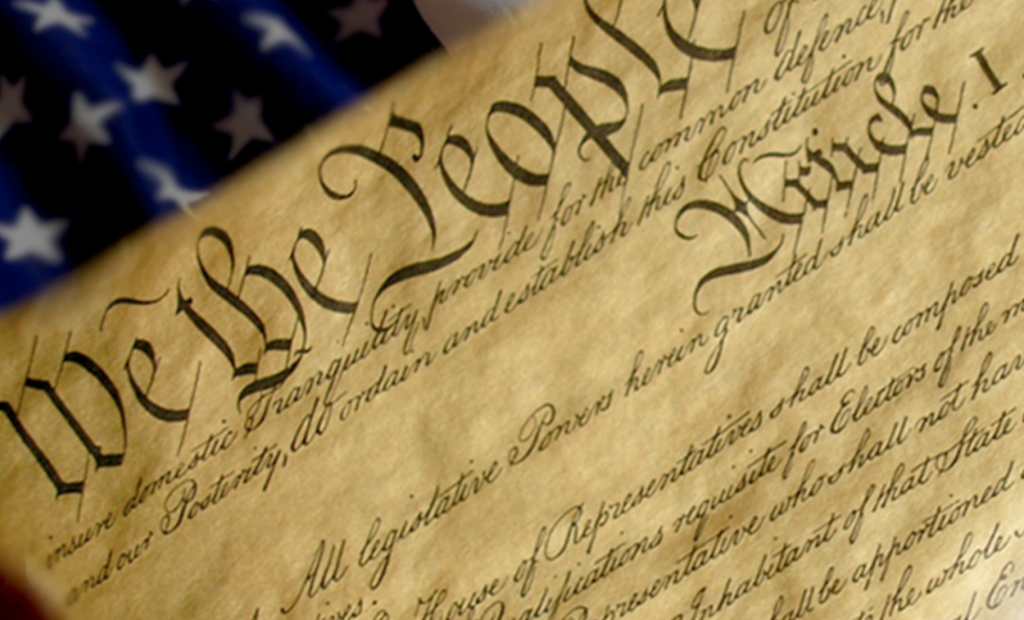 We the People
insure domestic Tranquility, provide for the common defence,
and our Posterity, do ordain and establish this Constitution for the
Article. I
All legislative Powers herein granted shall be vested
House of Representatives shall be composed
Qualifications requisite for Electors of the
Representative who shall not have
Inhabitant of that State
shall be apportioned
the whole